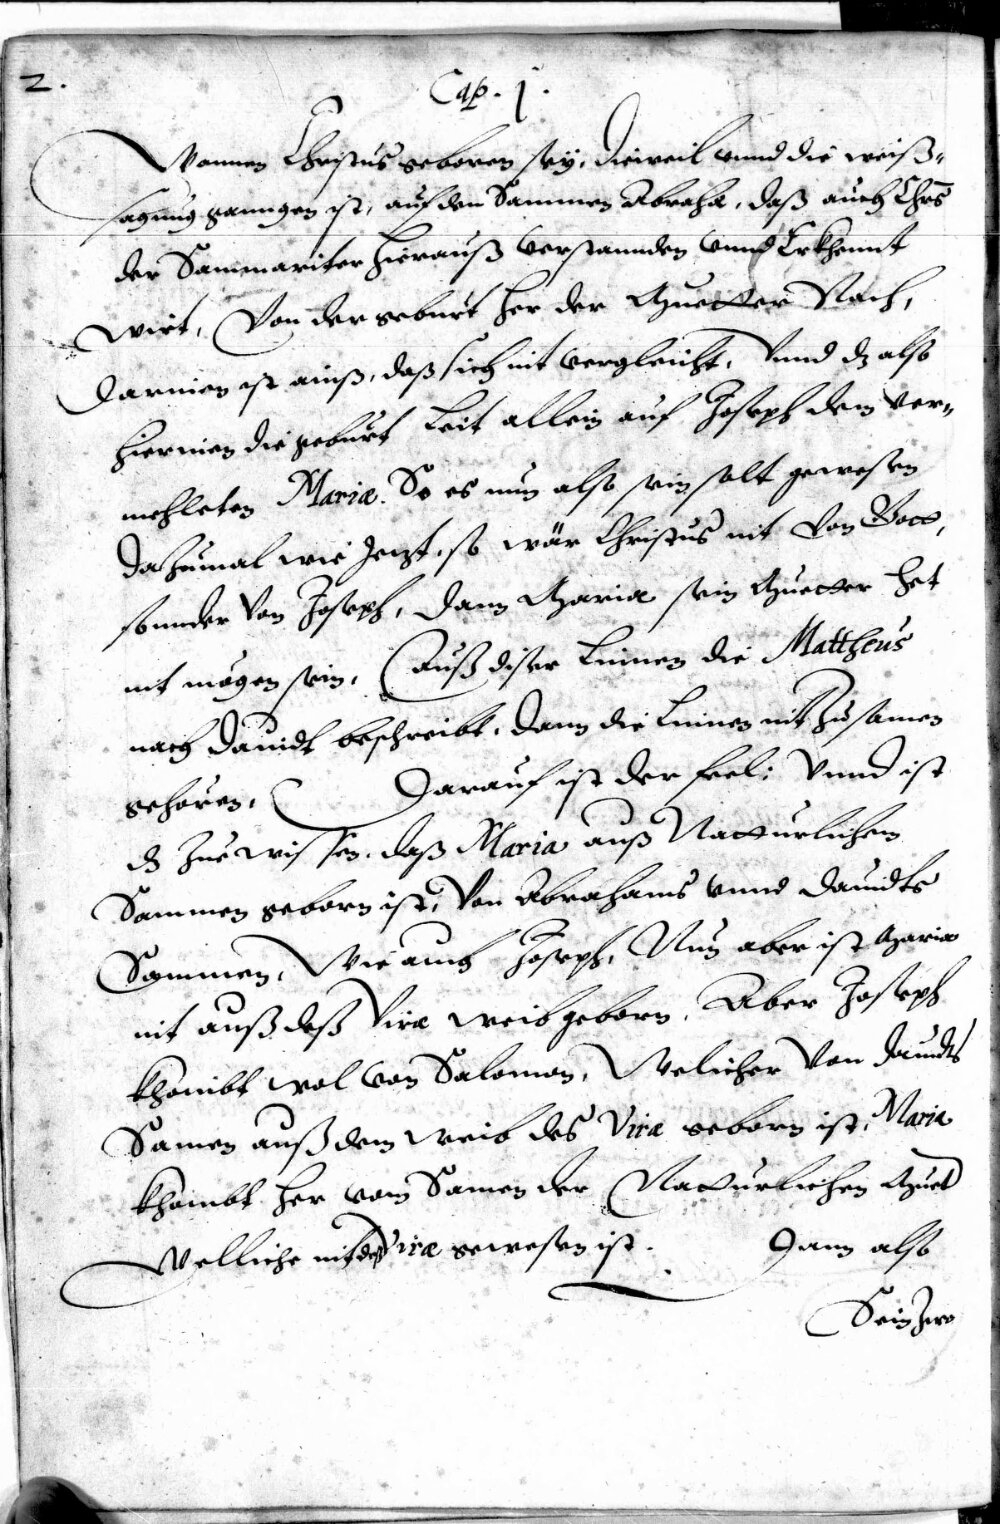 2.
Cap. 1.
Wannen Christus geboren sey, dieweil vnnd die weiß-
sagung ganngen ist, auf den Sammen Abrahæ, daß auch Chrs
der Sammariter hierauß verstannden vnnd Erkhennt
wirt, Von der geburt her der Muetter Nach,
Darinnen ist ainß, daß sich nit vergleicht, Vnnd dz also
hierinen die geburt Leit allein auf Joseph dem ver-
mehleten Mariæ. So es nun also sein solt gewesen
dazumal wie Jetzt, so wär Christus nit von Gott,
sonnder von Joseph, dann Maria sein Muetter het
nit mögen sein, Auß diser Linien die Mattheus
nach Dauidt beschreibt, dann die Linien nit zusamen
gehören, Darauf ist der feel: Vnnd ist
dz zue wissen, daß Maria auß Natturlichem
Sammen geborn ist, Von Abrahams vnnd Dauidts
Sammen, Wie auch Joseph, Nun aber ist Maria
nit auß deß Viræ weib geborn, Aber Joseph
khombt wol von Salomon, Welicher von Dauidts
Samen auß dem weib des Viræ geborn ist, Maria
khombt her vom Samen der Natturlichen Muet
Welliche nit deß Viræ gewesen ist. Dann also
Sein Zwo